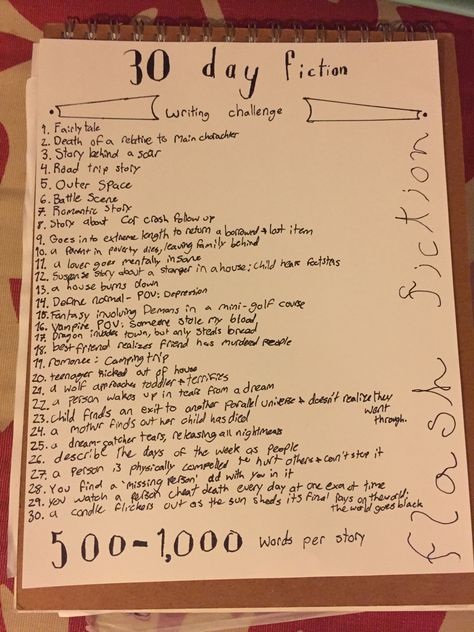 30 day fiction
writing challenge
1. Fairytale
2. Death of a relative to main charachter
3. Story behind a scar
4. Road trip story
5. Outer Space
6. Battle Scene
7. Romantic story
8. Story about car crash follow up
9. Goes into extreme length to return a borrowed + lost item
10. a parent in poverty dies, leaving family behind
11. a lover goes mentally insane
12. Suspense story about a stanger in a house; child hears footsteps
13. a house burns down
14. Define normal - POV: Depression
15. Fantasy involving Demons in a mini-golf course
16. Vampire POV: Someone stole my blood
17. Dragon invades town, but only steals bread
18. best friend realizes friend has murdered people
19. romance: Camping trip
20. teenager kicked out of house
21. a wolf approaches toddler + terrifies
22. a person wakes up in tears from a dream
23. Child finds an exit to another parallel universe + doesn't realize they went through.
24. a mothur finds out her child has died
25. a dream-catcher tears, releasing all nightmares
26. describe the days of the week as people
27. a person is physically compelled to hurt others + can't stop it
28. You find a 'missing person' ad with you in it
29. you watch a person cheat death every day at one exact time
30. a candle flickers out as the sun sheds its final rays on the world; the world goes black
500-1,000 words per story
flash fiction